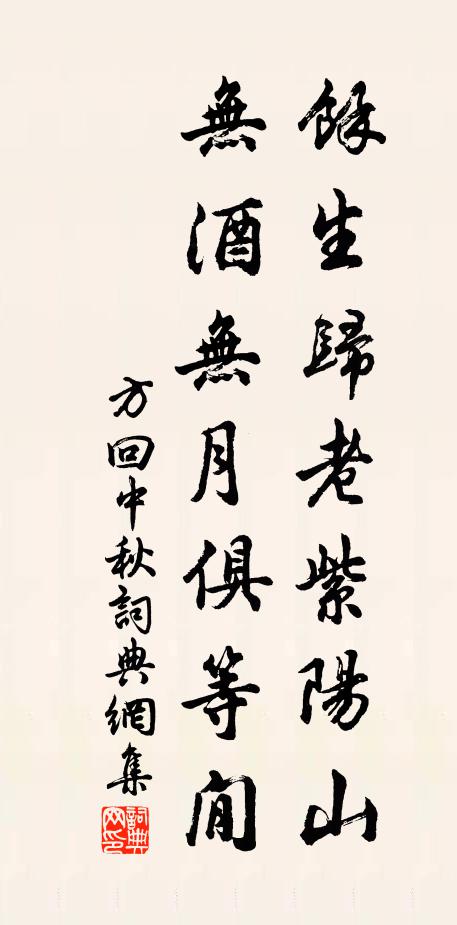 餘生歸老紫陽山
無酒無月俱等閒
方回中秋詞典網集
詞典网印